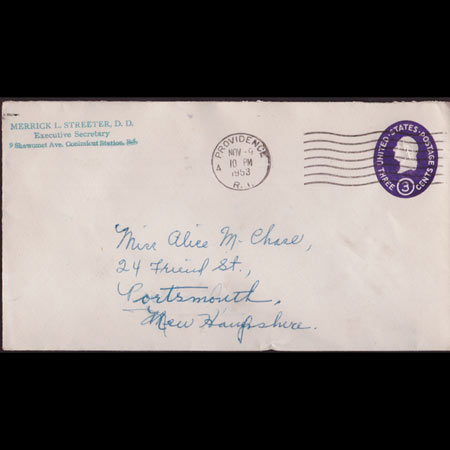 MERRICK L. STREETER, D. D.
Executive Secretary
9 Shawomet Ave. Conimicut Station, R.I.
PROVIDENCE
4
NOV -9
10 PM
1953
R. I.
UNITED·STATES·POSTAGE
THREE 3 CENTS
Miss Alice M. Chase,
24 Friend St.,
Portsmouth,
New Hampshire.